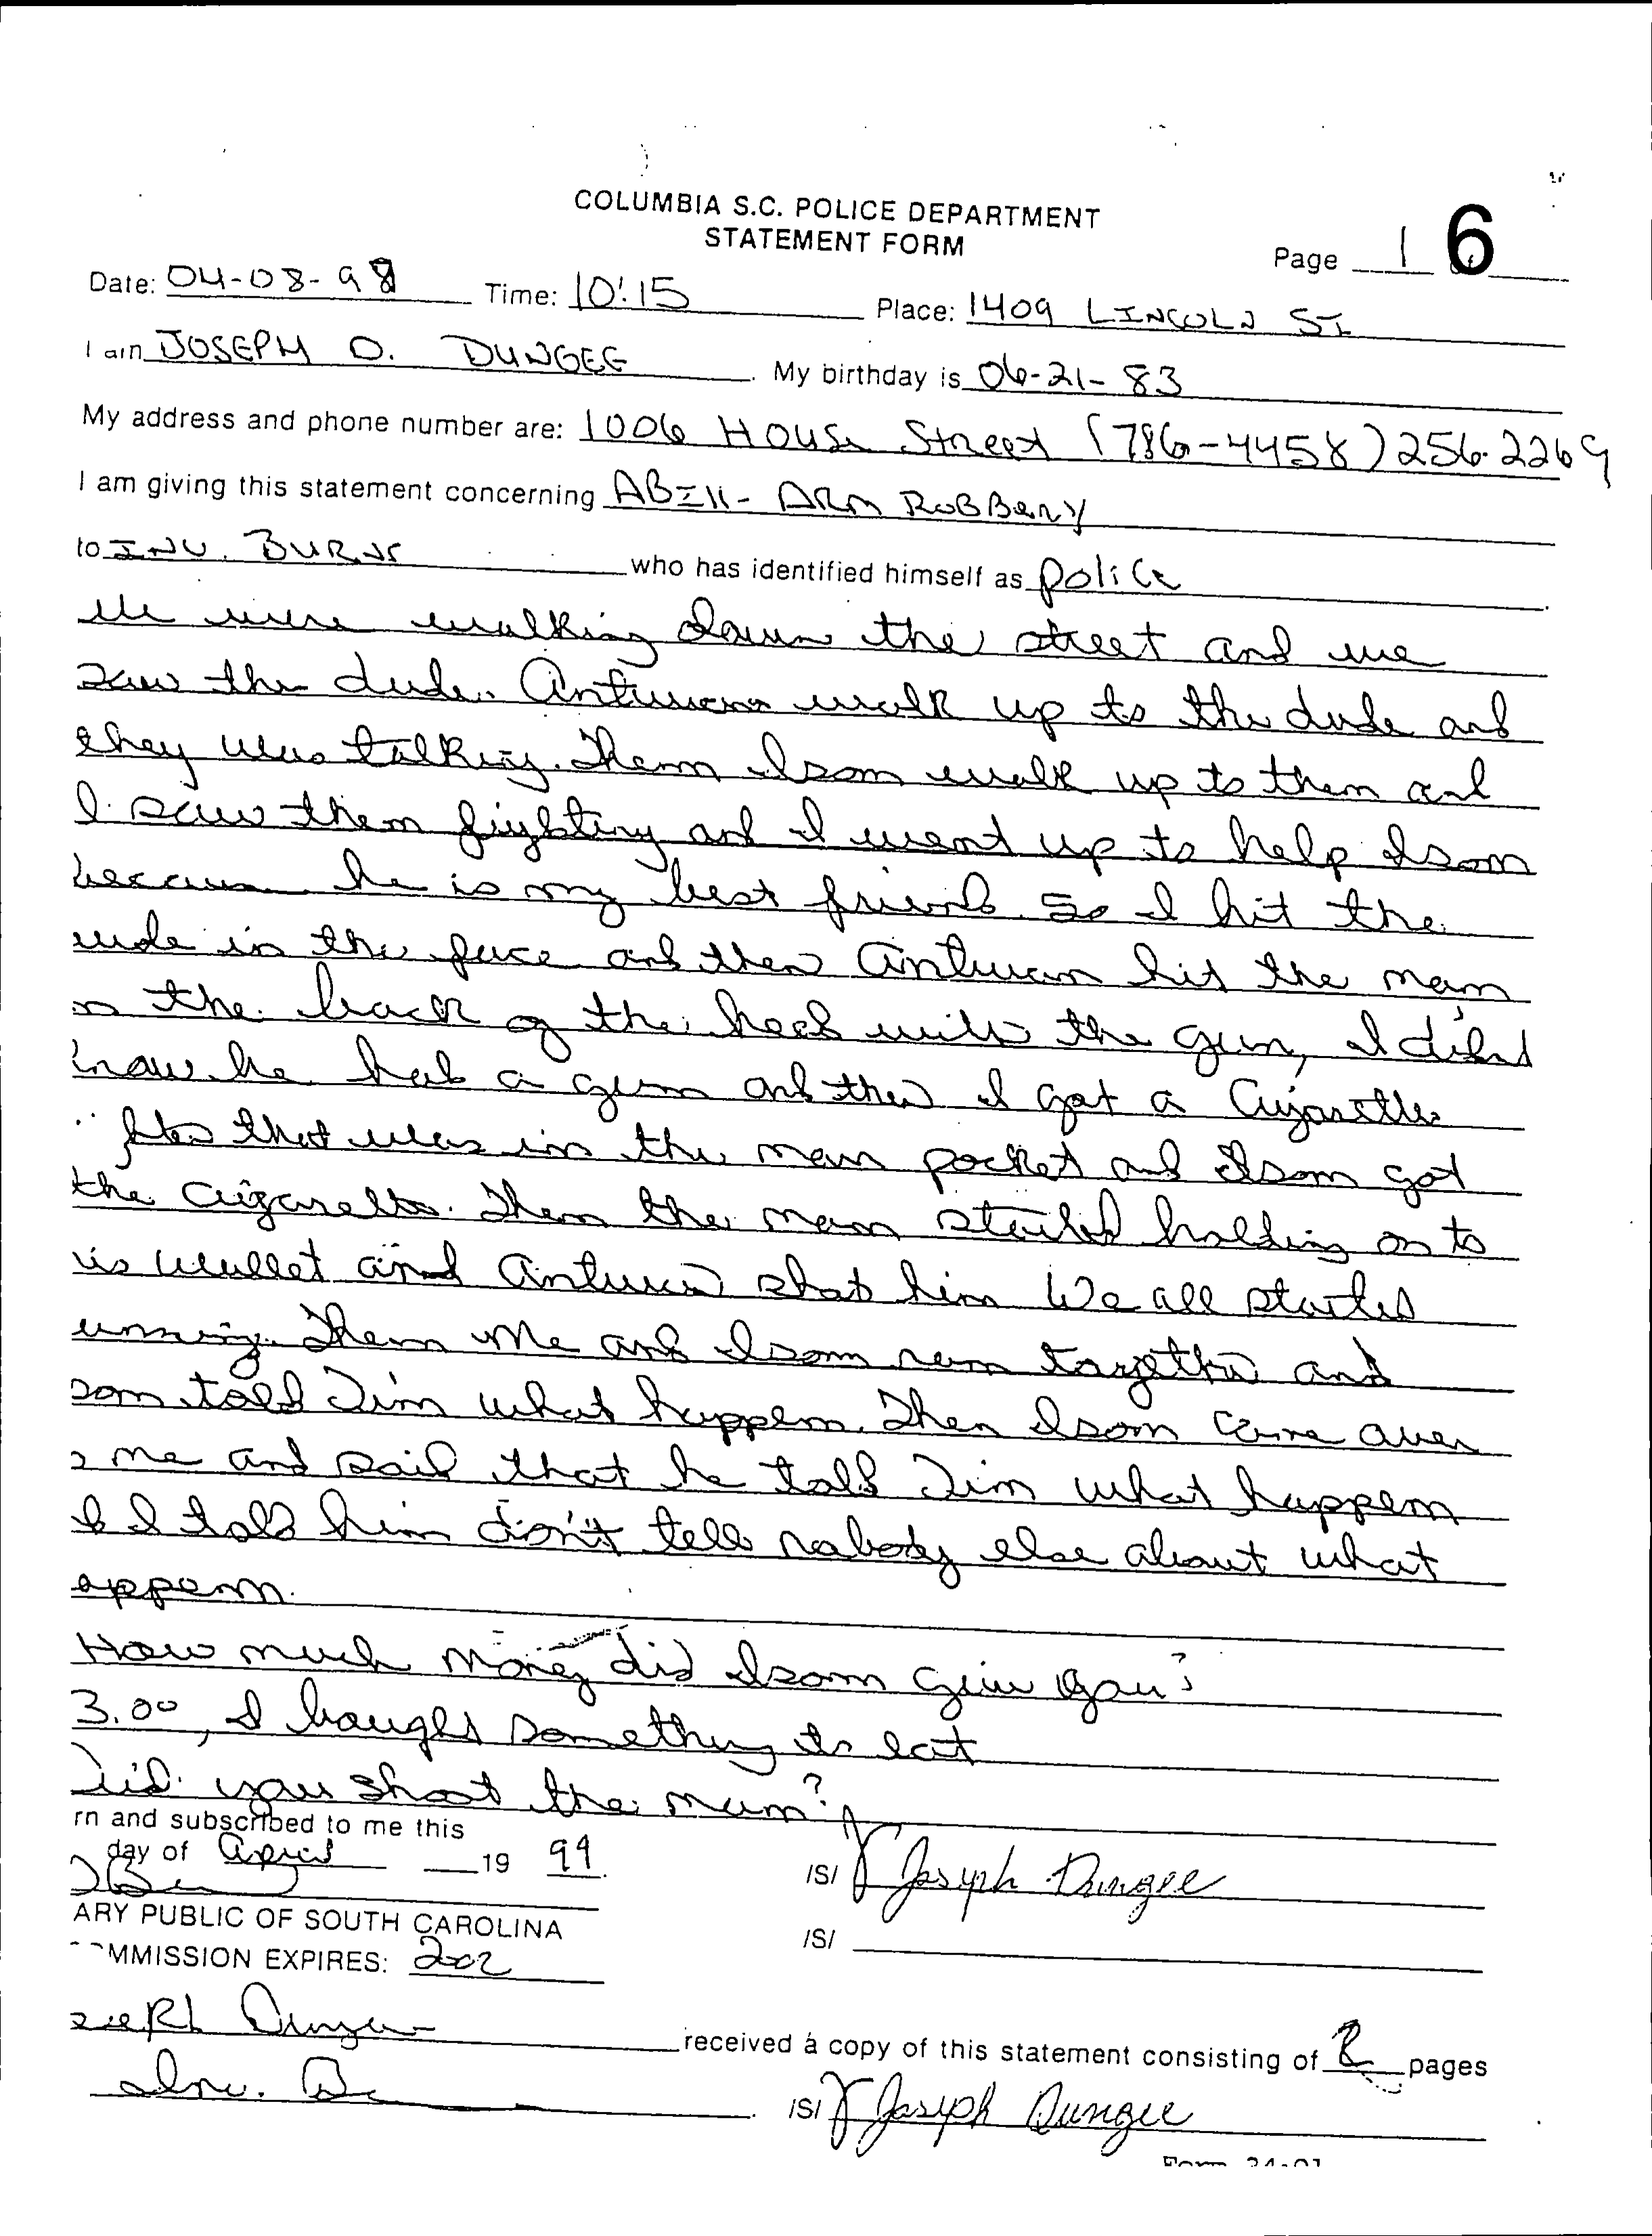 COLUMBIA S.C. POLICE DEPARTMENT
STATEMENT FORM
Page 1 6
Date: 04-08-98 Time: 10:15 Place: 1409 LINCOLN ST
I am JOSEPH O. DUNGEE My birthday is 06-21-83
My address and phone number are: 1006 House Street (786-4458) 256-2269
I am giving this statement concerning ABIII- ARM RobbeRy
to INV. BURNS who has identified himself as police
We were walking down the street and we
saw the dude. Antwan walk up to the dude and
they was talking. Then Isom walk up to them and
I saw them fighting and I went up to help Isom
because he is my best friend. So I hit the
ude in the face and then Antwan hit the man
n the back of the head with the gun, I didnt
know he had a gun and then I got a Cigarette
that was in the man pocket and Isom got
the cigarette. Then the man started holding on to
is wallet and Antwan shot him We all started
unning. Then Me and Isom ran together and
som told Jim what happen. Then Isom came over
o me and said that he told Jim what happen
d I told him don't tell nobody else about what
appen.
How much Money did Isom give you?
3.00, I bought something to eat
Did you shoot the man?
rn and subscribed to me this
day of April 19 99
/S/ Joseph Dungee
ARY PUBLIC OF SOUTH CAROLINA
/S/
MMISSION EXPIRES: 2002
seph Dungee received a copy of this statement consisting of 2 pages
Inv. /S/ Joseph Dungee
Form 34-01